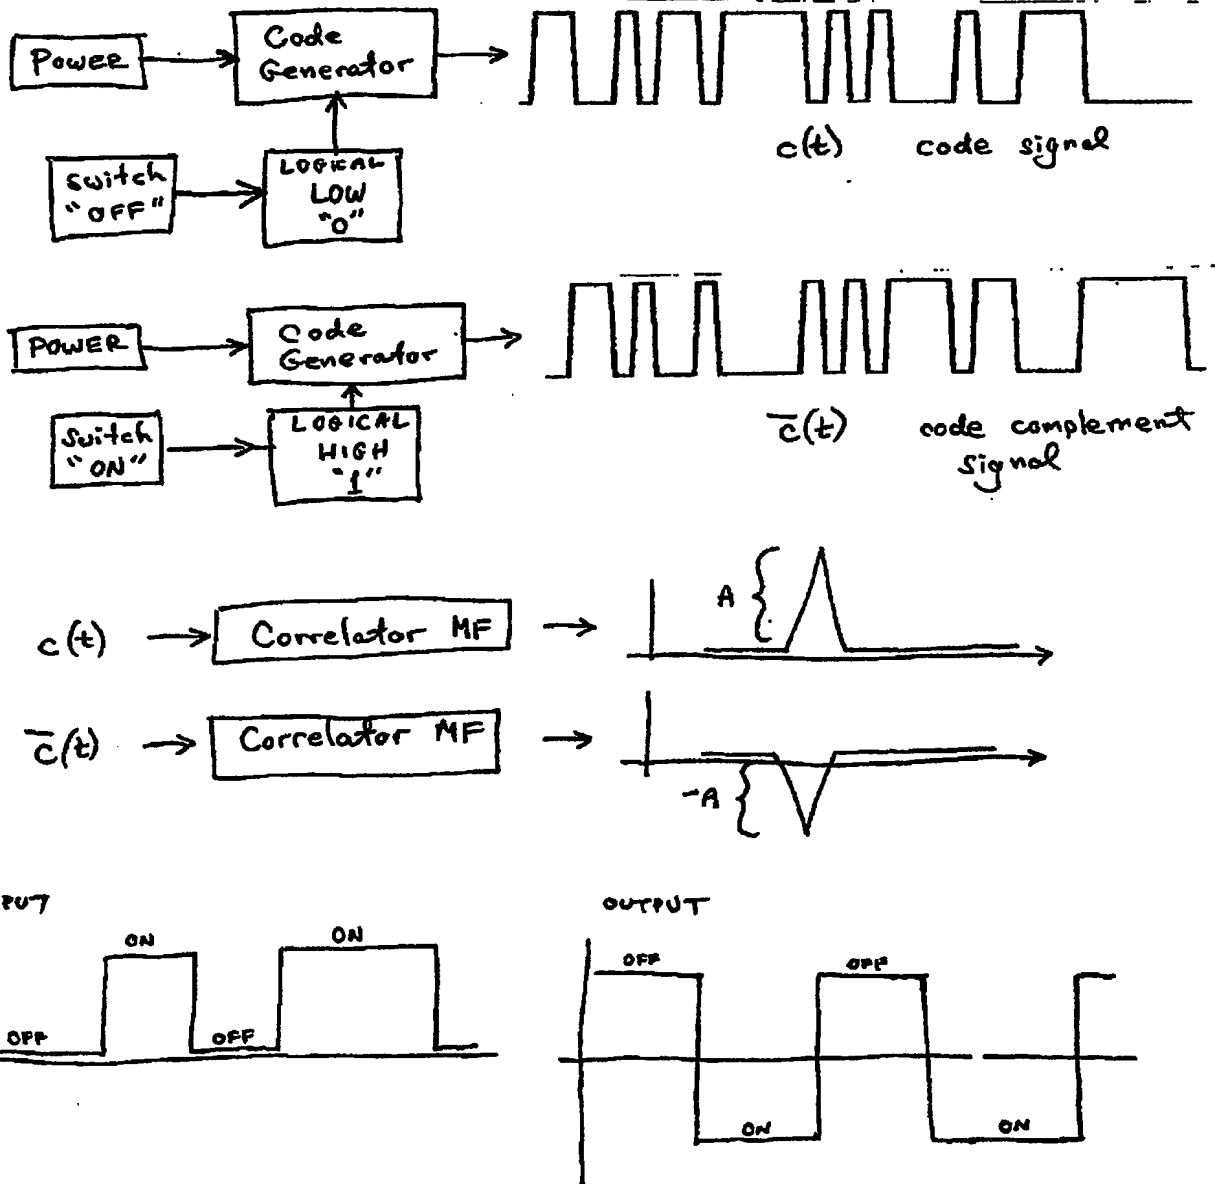 Power
Code
Generator
Switch
"OFF"
LOGICAL
LOW
"0"
c(t) code signal
POWER
Code
Generator
Switch
"ON"
LOGICAL
HIGH
"1"
c̅(t) code complement
signal
c(t)
Correlator MF
A
c̅(t)
Correlator MF
-A
PUT
OUTPUT
ON
ON
OFF
OFF
OFF
OFF
ON
ON